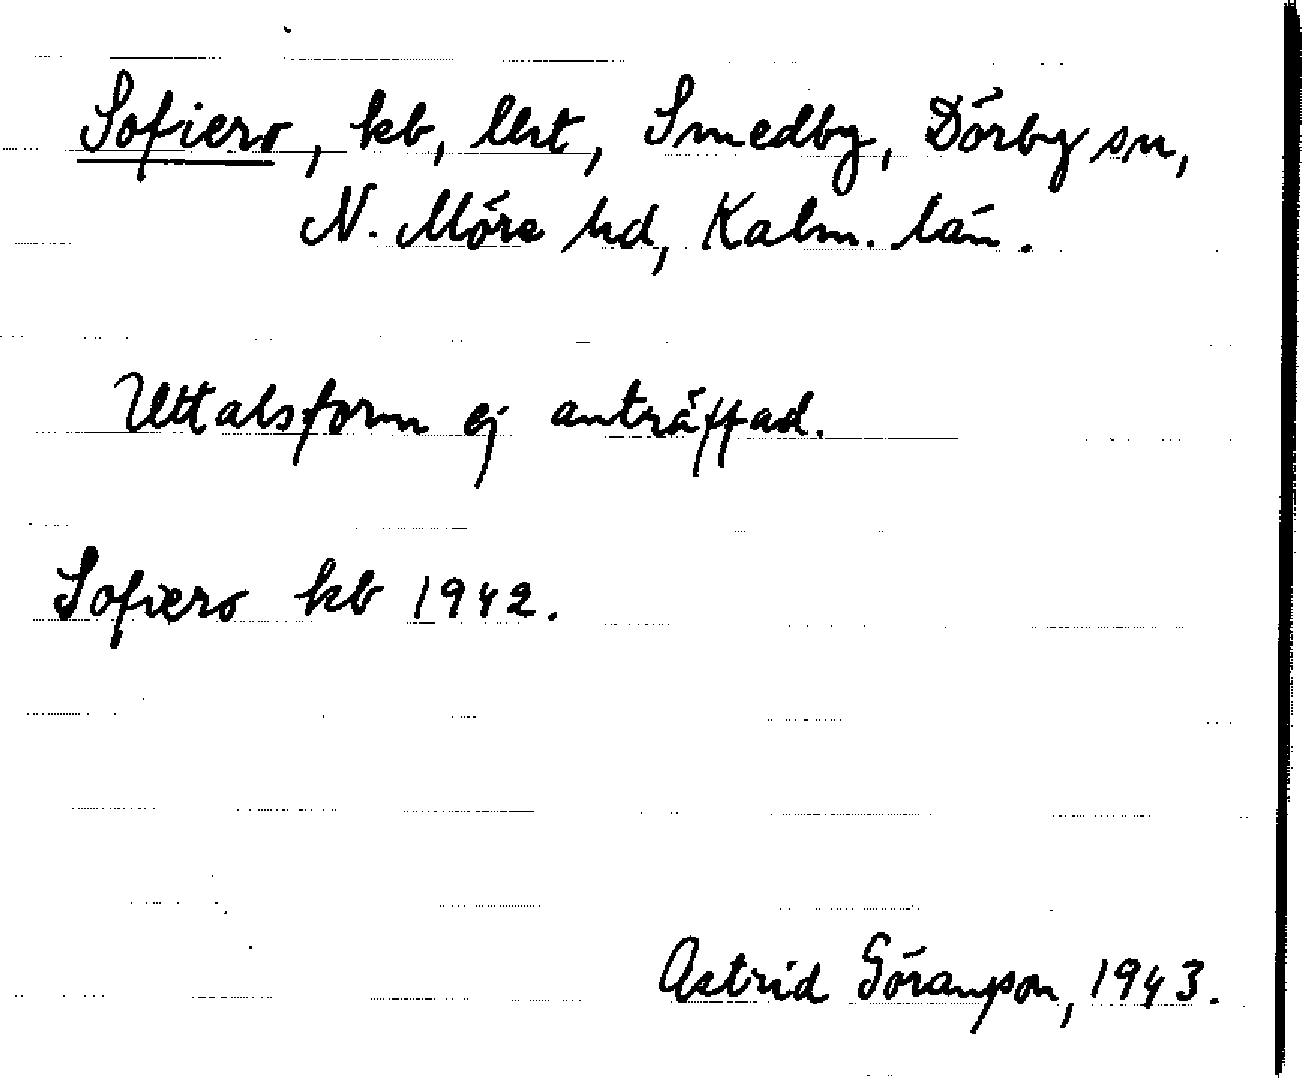 Sofiero, kb, lht, Smedby, Dörby sn,
N. Möre hd, Kalm. län.
Uttalsform ej anträffad.
Sofiero kb 1942.
Astrid Göranson, 1943.